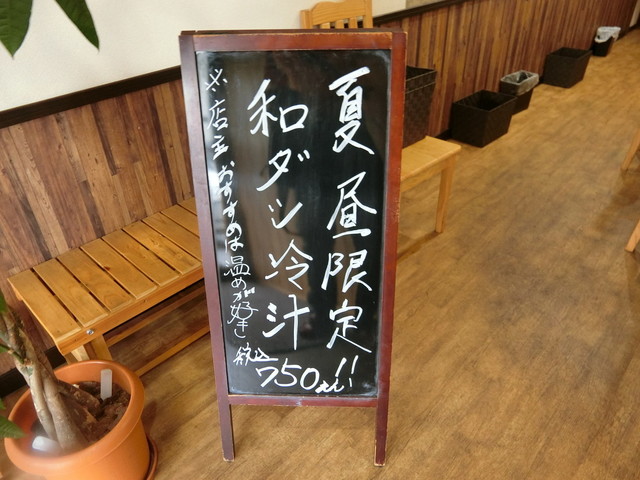 夏 昼限定!!
和ダシ冷汁
税込750えん
※店主おすすめは温めが好き